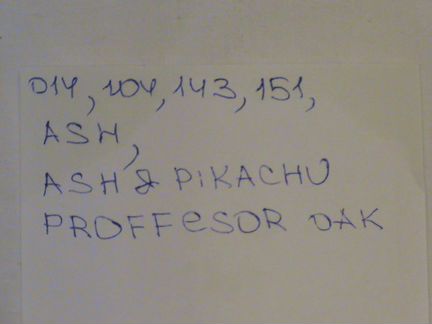 014, 104, 143, 151,
ASH,
ASH & PiKACHU
PROFFeSOR OAK